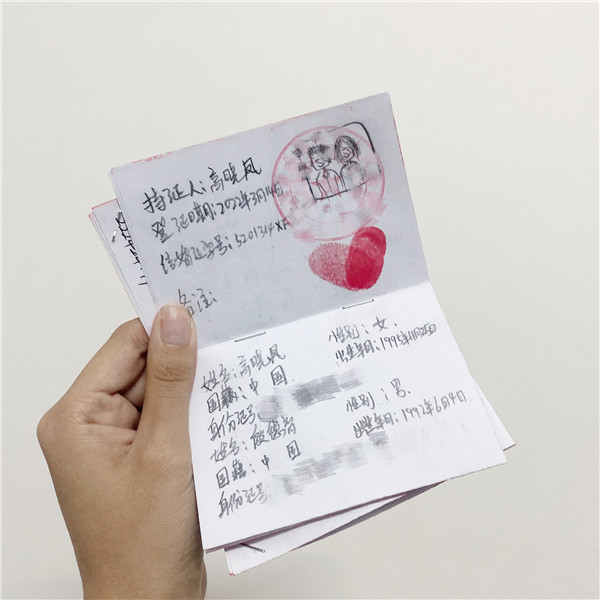 持证人:高晓凤
登记日期:2022年3月14日
结婚证字号:5201314XF
备注:
姓名:高晓凤 性别:女.
国籍:中 国 出生年月:1995年11月25日
身份证号
姓名:殷德智 性别:男.
国籍:中 国 出生年月:1992年6月9日.
身份证号